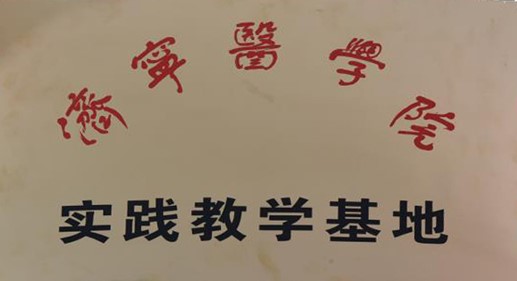 濟寧醫學院
实践教学基地